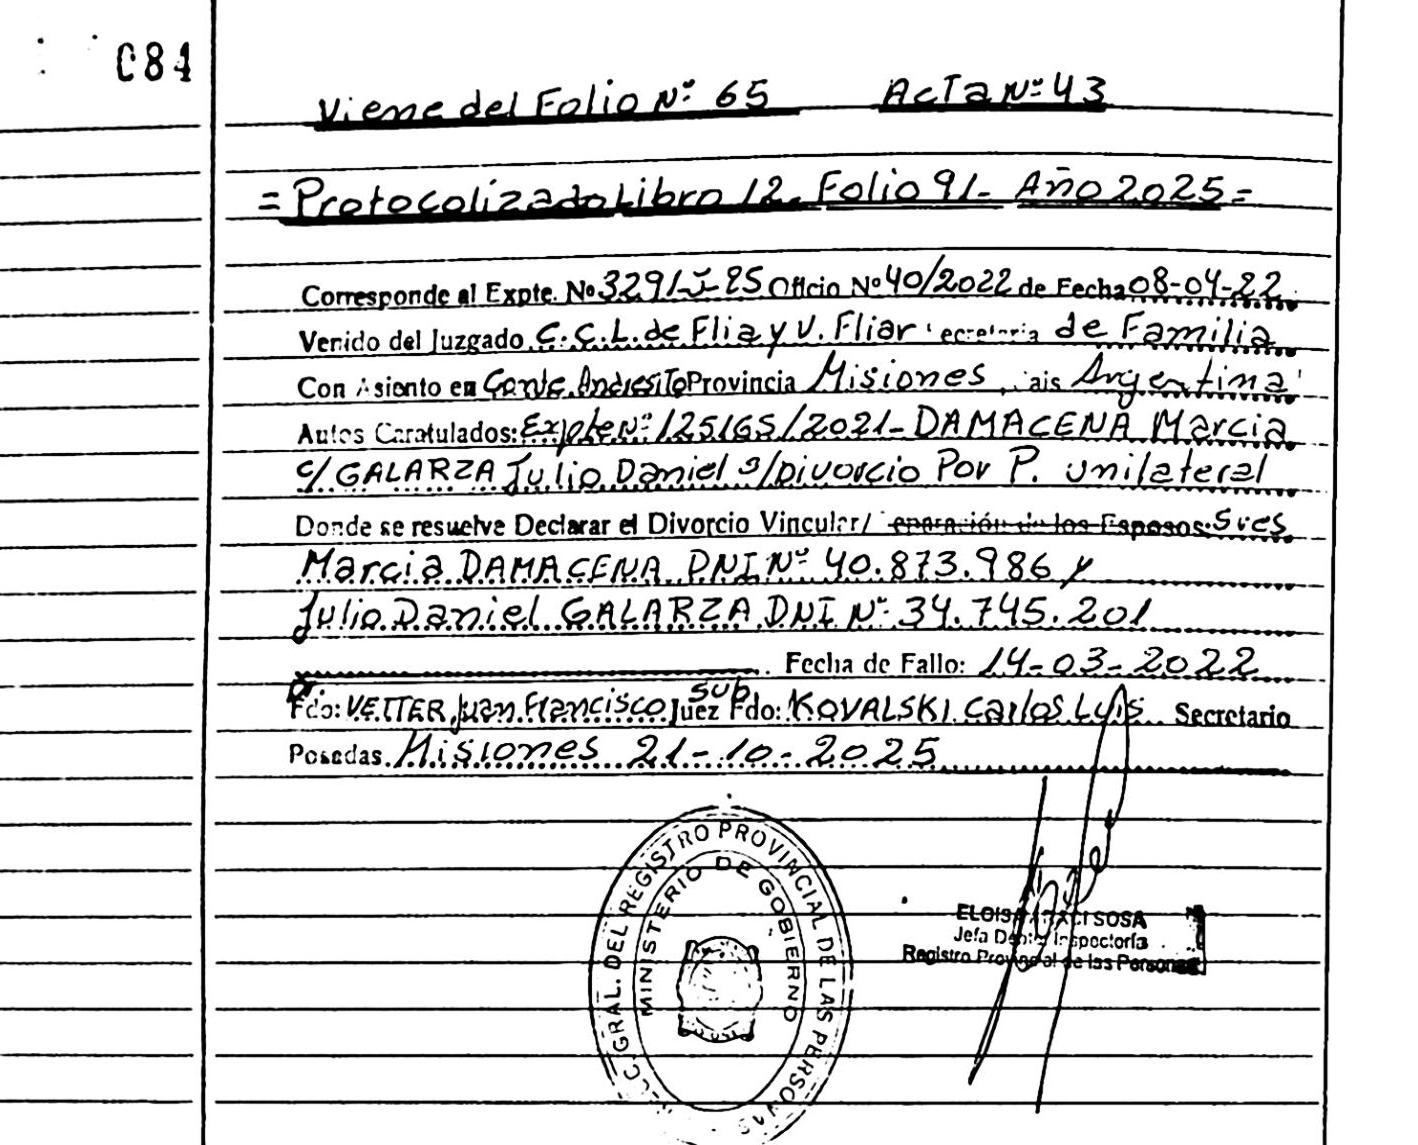 084
Viene del Folio Nº 65 Acta Nº 43
= Protocolizado Libro 12. Folio 91- Año 2025=
Corresponde al Expte. Nº 3291-J-25 Oficio Nº 40/2022 de Fecha 08-04-22
Venido del Juzgado C.C.L. de Flia y V. Fliar Secretaria de Familia
Con Asiento en Cante. Andresito Provincia Misiones, País Argentina
Autos Caratulados: Expte Nº 125165/2021- DAMACENA Marcia
c/ GALARZA Julio Daniel s/Divorcio Por P. unilateral
Donde se resuelve Declarar el Divorcio Vincular/ eparación de los Esposos: Sres
Marcia DAMACENA DNI Nº 40.873.986 y
Julio Daniel GALARZA DNI Nº 34.745.201
Fecha de Fallo: 14-03-2022
Dr.
Fdo: VETTER Juan Francisco Juez Sub Fdo: KOVALSKI Carlos Luis Secretario
Posadas. Misiones 21-10-2025
GRAL. DEL REGISTRO PROVINCIAL DE LAS PERSONAS
MINISTERIO DE GOBIERNO
ELOISA ARACI SOSA
Jefa Dpto. Inspectoría
Registro Provincial de las Personas